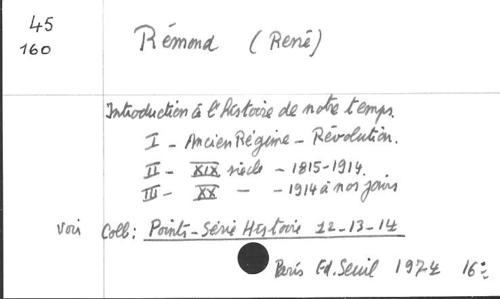 45
160
Rémond (René)
Introduction à l'histoire de notre temps.
I - Ancien Régime - Révolution.
II - XIX siècle - 1815-1914.
III - XX - - 1914 à nos jours
voir Coll: Points-Série Histoire 12-13-14
Paris Ed. Seuil 1974 16º